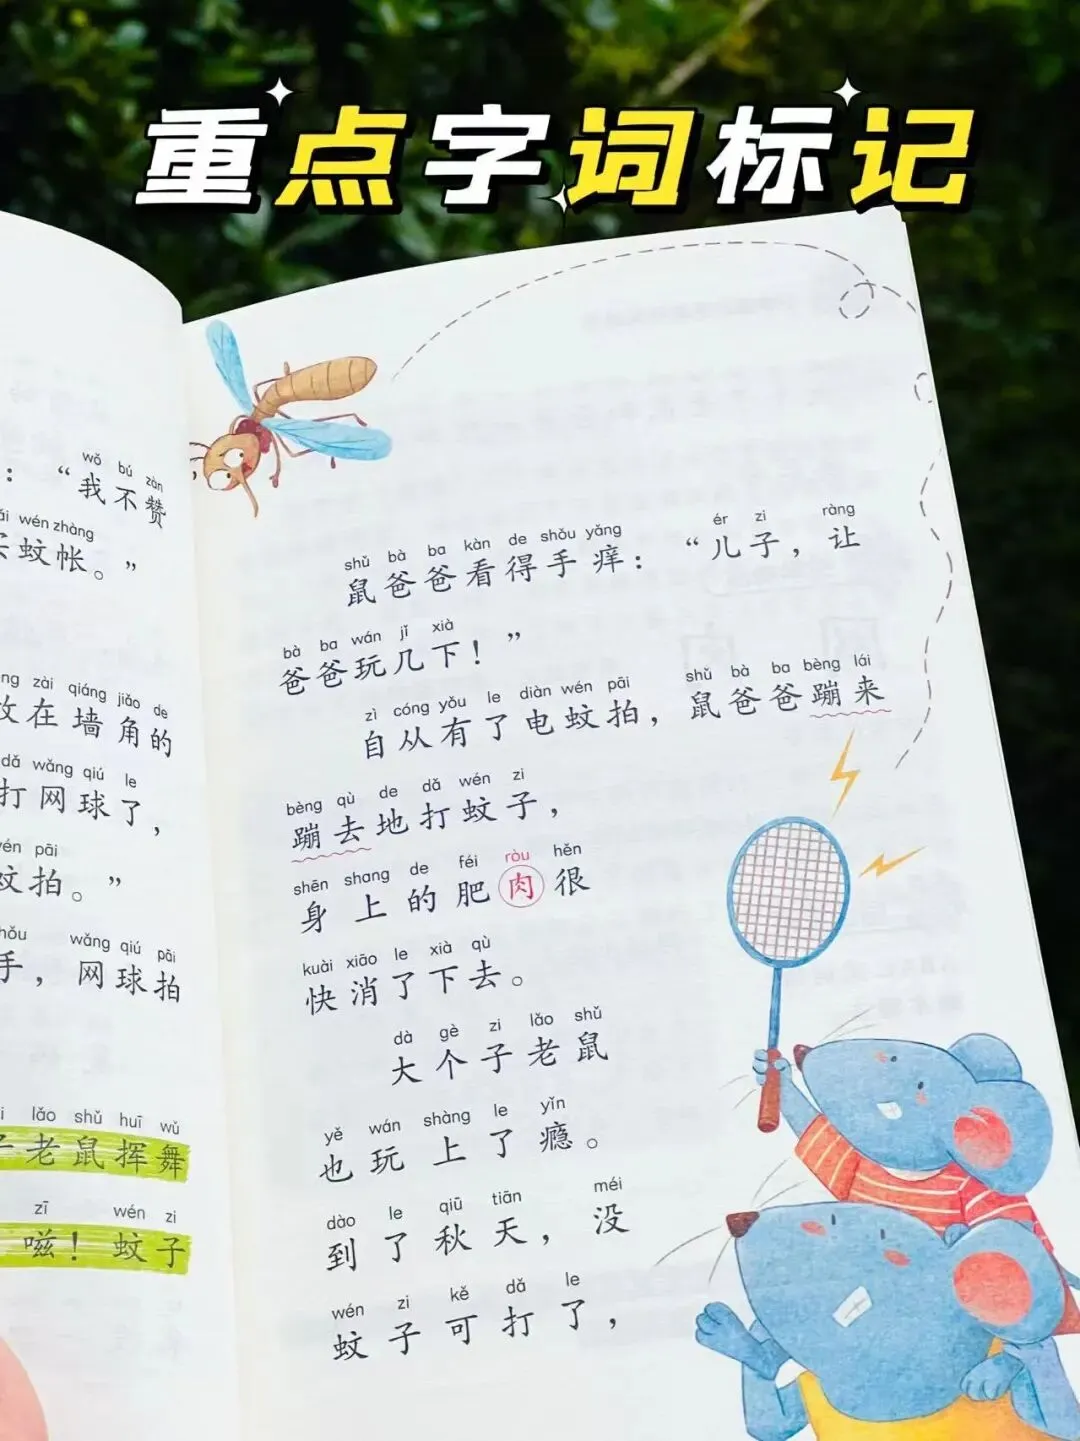 重点字词标记
wǒ bú zàn
：“我不赞
wén zhàng
蚊帐。”
zài qiáng jiǎo de
在墙角的
dǎ wǎng qiú le
打网球了，
pāi
蚊拍。”
wǎng qiú pāi
手，网球拍
lǎo shǔ huī wǔ
老鼠挥舞
zī wén zi
嗞！蚊子
shǔ bà ba kàn de shǒu yǎng ér zi ràng
鼠爸爸看得手痒：“儿子，让
bà ba wán jǐ xià
爸爸玩几下！”
zì cóng yǒu le diàn wén pāi shǔ bà ba bèng lái
自从有了电蚊拍，鼠爸爸蹦来
bèng qù de dǎ wén zi
蹦去地打蚊子，
shēn shang de féi ròu hěn
身上的肥肉很
kuài xiāo le xià qù
快消了下去。
dà gè zi lǎo shǔ
大个子老鼠
yě wán shàng le yǐn
也玩上了瘾。
dào le qiū tiān méi
到了秋天，没
wén zi kě dǎ le
蚊子可打了，